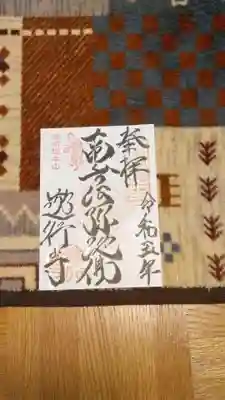 奉拝
令和五年
南無阿弥陀佛
遊行寺